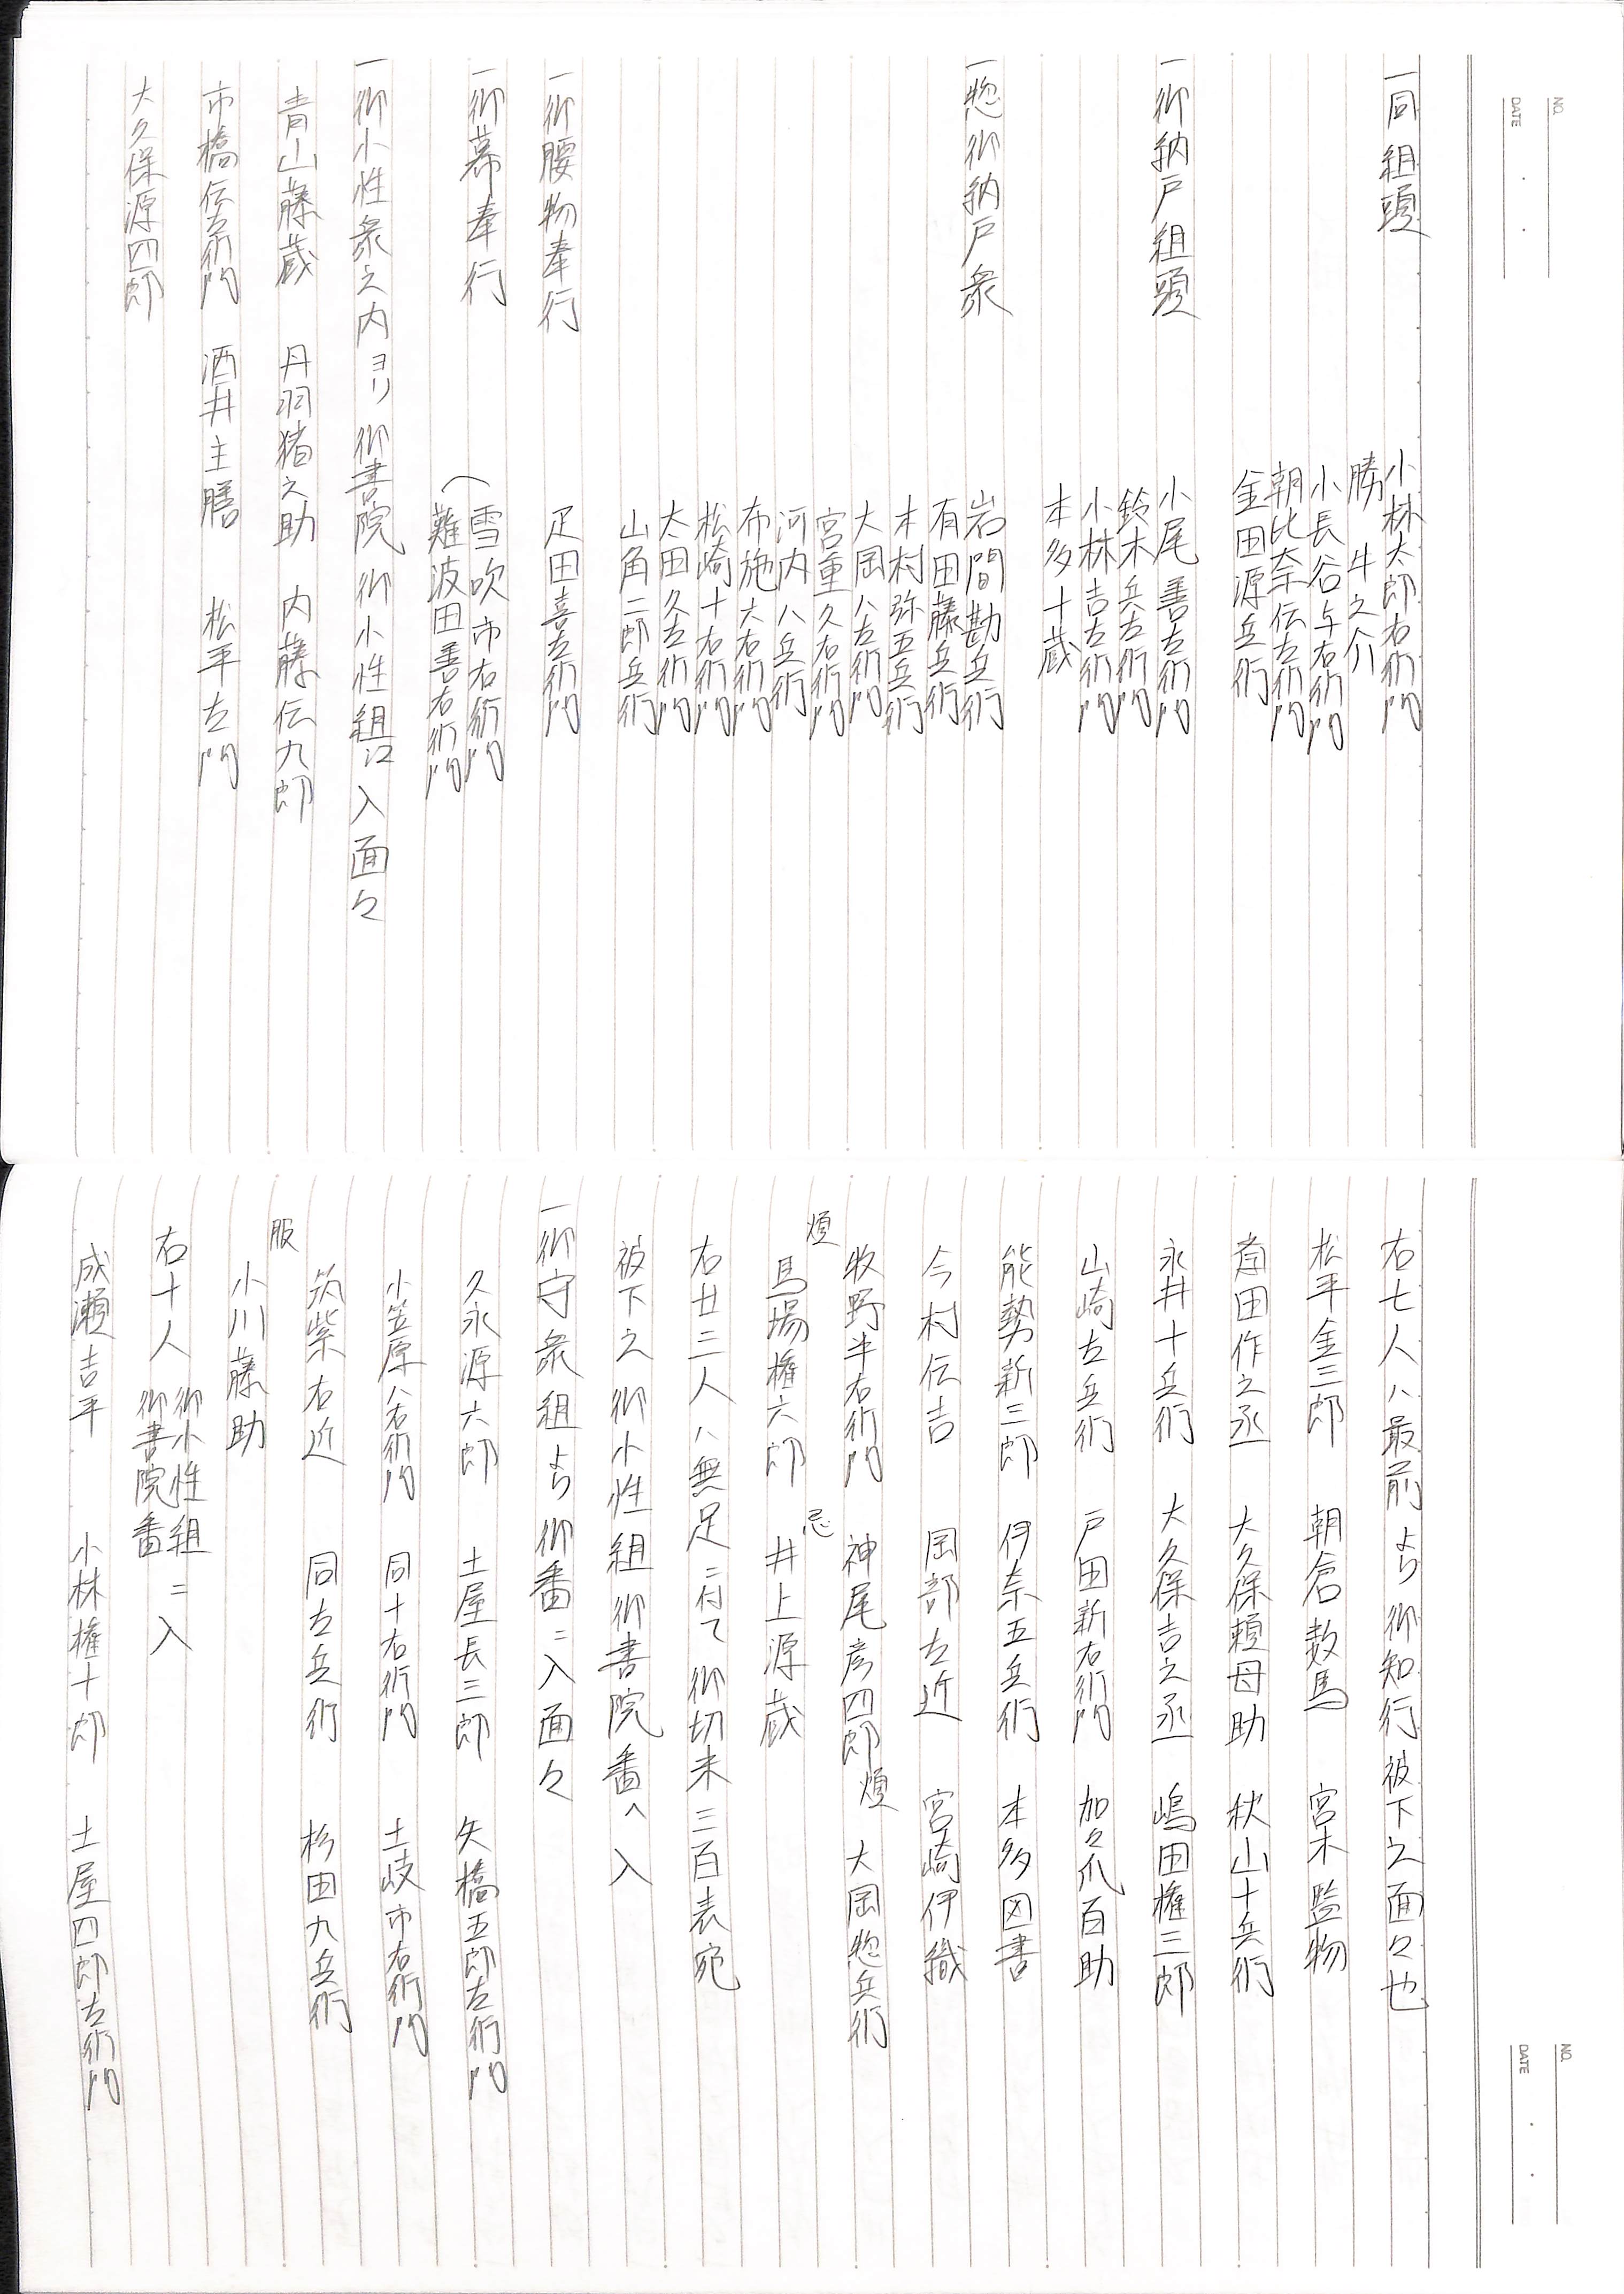 NO.
DATE
一同組頭
小林太郎右衛門
勝 牛之介
小長谷与右衛門
朝比奈伝左衛門
金田源兵衛
一御納戸組頭
小尾善左衛門
鈴木兵左衛門
小林吉左衛門
本多十蔵
一惣御納戸衆
岩間勘兵衛
有田藤兵衛
木村弥五兵衛
大岡八左衛門
宮重久右衛門
河内八兵衛
布施大右衛門
松崎十右衛門
太田久左衛門
山角二郎兵衛
一御腰物奉行
疋田喜左衛門
一御幕奉行
雪吹市右衛門
難波田善右衛門
一御小性衆之内ヨリ御書院御小性組江入面々
青山藤蔵 丹羽猪之助 内藤伝九郎
市橋伝左衛門 酒井主膳 松平左門
大久保源四郎
NO.
DATE
右七人ハ最前より御知行被下之面々也
松平金三郎 朝倉数馬 宮木監物
沓田作之丞 大久保頼母助 秋山十兵衛
永井十兵衛 大久保吉之丞 嶋田権三郎
山崎左兵衛 戸田新右衛門 加々爪百助
能勢新三郎 伊奈五兵衛 本多図書
今村伝吉 岡部左近 宮崎伊織
牧野半右衛門 神尾彦四郎 煩 大岡惣兵衛
煩 馬場権六郎 忌 井上源蔵
右廿三人ハ無足ニ付て御切米三百表宛
被下之御小性組御書院番へ入
一御守衆組より御番ニ入面々
久永源六郎 土屋長三郎 矢橋五郎左衛門
小笠原八右衛門 同十右衛門 土岐市右衛門
筑紫右近 同左兵衛 杉田九兵衛
服 小川藤助
右十人 御小性組 御書院番 ニ入
成瀬吉平 小林権十郎 土屋四郎左衛門